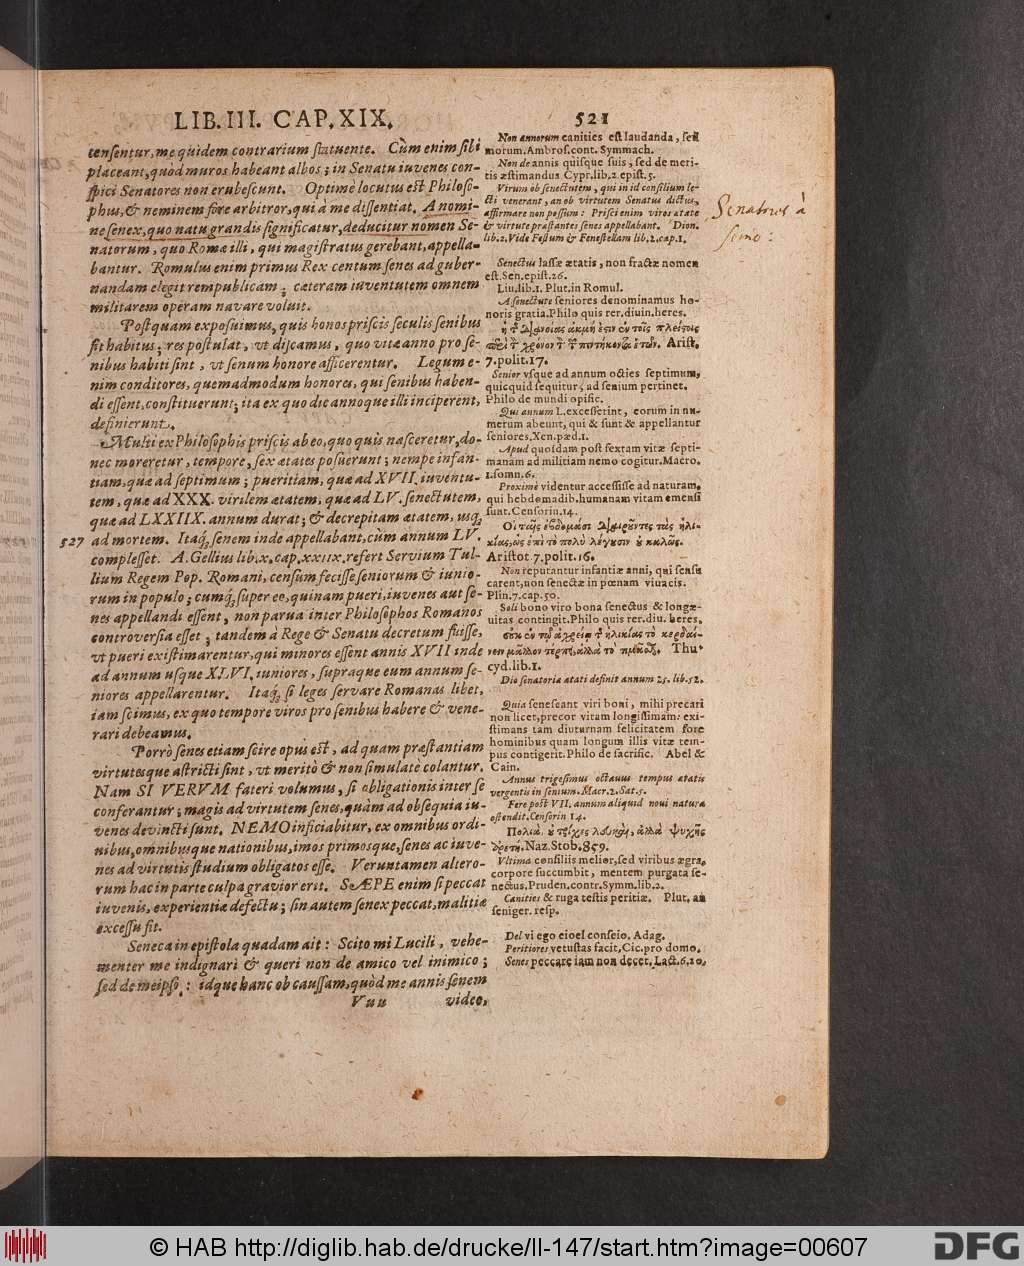 LIB. III. CAP. XIX. 521
censentur, me quidem contrarium statuente. Cùm enim sibi
placeant, quòd muros habeant albos; in Senatu iuvenes con-
spici Senatores non erubescunt. Optime locutus est Philoso-
phus, & neminem fore arbitror, qui à me dissentiat. A nomi-
ne senex, quo natu grandis significatur, deducitur nomen Se-
natorum, quo Romæ illi, qui magistratus gerebant, appella-
bantur. Romulus enim primus Rex centum senes ad guber-
nandam elegit rempublicam; cæteram iuventutem omnem
militarem operam navare voluit.
Postquam exposuimus, quis honos priscis seculis senibus
sit habitus; res postulat, vt discamus, quo vitæ anno pro se-
nibus habiti sint, vt senum honore afficerentur. Legum e-
nim conditores, quemadmodum honores, qui senibus haben-
di essent, constituerunt; ita ex quo die annoque illi inciperent,
definierunt.
Multi ex Philosophis priscis ab eo, quo quis nasceretur, do-
nec moreretur, tempore, sex ætates posuerunt; nempe infan-
tiam, quæ ad septimum; pueritiam, quæ ad XVII. iuventu-
tem, quæ ad XXX. virilem ætatem, quæ ad LV. senectutem,
quæ ad LXXIIX. annum durat; & decrepitam ætatem, usq;
527 ad mortem. Itaq; senem inde appellabant, cùm annum LV.
complesset. A. Gellius lib. x. cap. xxiix. refert Servium Tul-
lium Regem Pop. Romani, censum fecisse seniorum & iunio-
rum in populo; cumq; super eo, quinam pueri, iuvenes aut se-
nes appellandi essent, non parva inter Philosophos Romanos
controversia esset; tandem à Rege & Senatu decretum fuisse,
vt pueri existimarentur, qui minores essent annis XVII inde
ad annum usque XLVI, iuniores, supraque eum annum se-
niores appellarentur. Itaq; si leges servare Romanas libet,
iam scimus, ex quo tempore viros pro senibus habere & vene-
rari debeamus.
Porrò senes etiam scire opus est, ad quam præstantiam
virtutesque astricti sint, vt meritò & non simulatè colantur.
Nam SI VERUM fateri volumus, si obligationis inter se
conferantur; magis ad virtutem senes, quàm ad obsequia iu-
venes devincti sunt. NEMO inficiabitur, ex omnibus ordi-
nibus, omnibusque nationibus, imos primosque, senes ac iuve-
nes ad virtutis studium obligatos esse. Veruntamen altero-
rum hac in parte culpa gravior erit. SÆPE enim si peccat
iuvenis, experientiæ defectu; sin autem senex peccat, malitiæ
excessu fit.
Seneca in epistola quadam ait: Scito mi Lucili, vehe-
menter me indignari & queri non de amico vel inimico;
sed de meipso: idque hanc ob caussam, quòd me annis senem
Vuu video,
Non annorum canities est laudanda, sed
morum. Ambros. cont. Symmach.
Non de annis quisque suis, sed de meri-
tis æstimandus Cypr. lib. 2. epist. 5.
Virum ob senectutem, qui in id consilium le-
cti venerant, an ob virtutem Senatus dictus,
affirmare non possum: Prisci enim viros ætate
& virtute præstantes senes appellabant. Dion.
lib. 2. Vide Festum & Fenestellam lib. 2. cap. 1.
Senectus lassæ ætatis, non fractæ nomen
est. Sen. epist. 26.
Liu. lib. 1. Plut. in Romul.
A senectute seniores denominamus ho-
noris gratia. Philo quis rer. diuin. heres.
ἡ τ̃ διανοίας ἀκμή ἐστιν ἐν τοῖς πλείστοις
Arist.
7. polit. 17.
Senior vsque ad annum octies septimum,
quicquid sequitur, ad senium pertinet.
Philo de mundi opific.
Qui annum L. excesserint, eorum in nu-
merum abeunt, qui & sunt & appellantur
seniores. Xen. pæd. 1.
Apud quosdam post sextam vitæ septi-
manam ad militiam nemo cogitur. Macro.
1. somn. 6.
Proximè videntur accessisse ad naturam,
qui hebdomadib. humanam vitam emensi
sunt. Censorin. 14.
Οἱ ταῖς ἑβδομάσι διαιροῦντες τὰς ἡλι-
κίας, ὡς ἐπὶ τὸ πολὺ λέγουσιν οὐ κακῶς.
Aristot. 7. polit. 16.
Non reputantur infantiæ anni, qui sensu
carent, non senectæ in pœnam viuacis.
Plin. 7. cap. 50.
Soli bono viro bona senectus & longæ-
uitas contingit. Philo quis rer. diu. heres.
οὐκ ἐν τῷ ἀχρείῳ τ̃ ἡλικίας τὸ κερδαί-
νειν μᾶλλον τέρπει, ἀλλὰ τὸ τιμᾶσθαι. Thu-
cyd. lib. 1.
Dio senatoria ætati definit annum 25. lib. 52.
Quia senescant viri boni, mihi precari
non licet, precor vitam longissimam: exi-
stimans tam diuturnam felicitatem fore
hominibus quam longum illis vitæ tem-
pus contigerit. Philo de sacrific. Abel &
Cain.
Annus trigesimus octauus tempus ætatis
vergentis in senium. Macr. 2. Sat. 5.
Fere post VII. annum aliquid noui natura
ostendit. Censorin 14.
Naz. Stob. 859.
Vltima consiliis melior, sed viribus ægra,
corpore succumbit, mentem purgata se-
nectus. Pruden. contr. Symm. lib. 2.
Canities & ruga testis peritiæ. Plut. an
seniger. resp.
Del vi ego eioel conseio. Adag.
Peritiores vetustas facit. Cic. pro domo.
Senes peccare iam non decet. Lact. 6. 20.
Senatores à
senio:
© HAB http://diglib.hab.de/drucke/ll-147/start.htm?image=00607
DFG